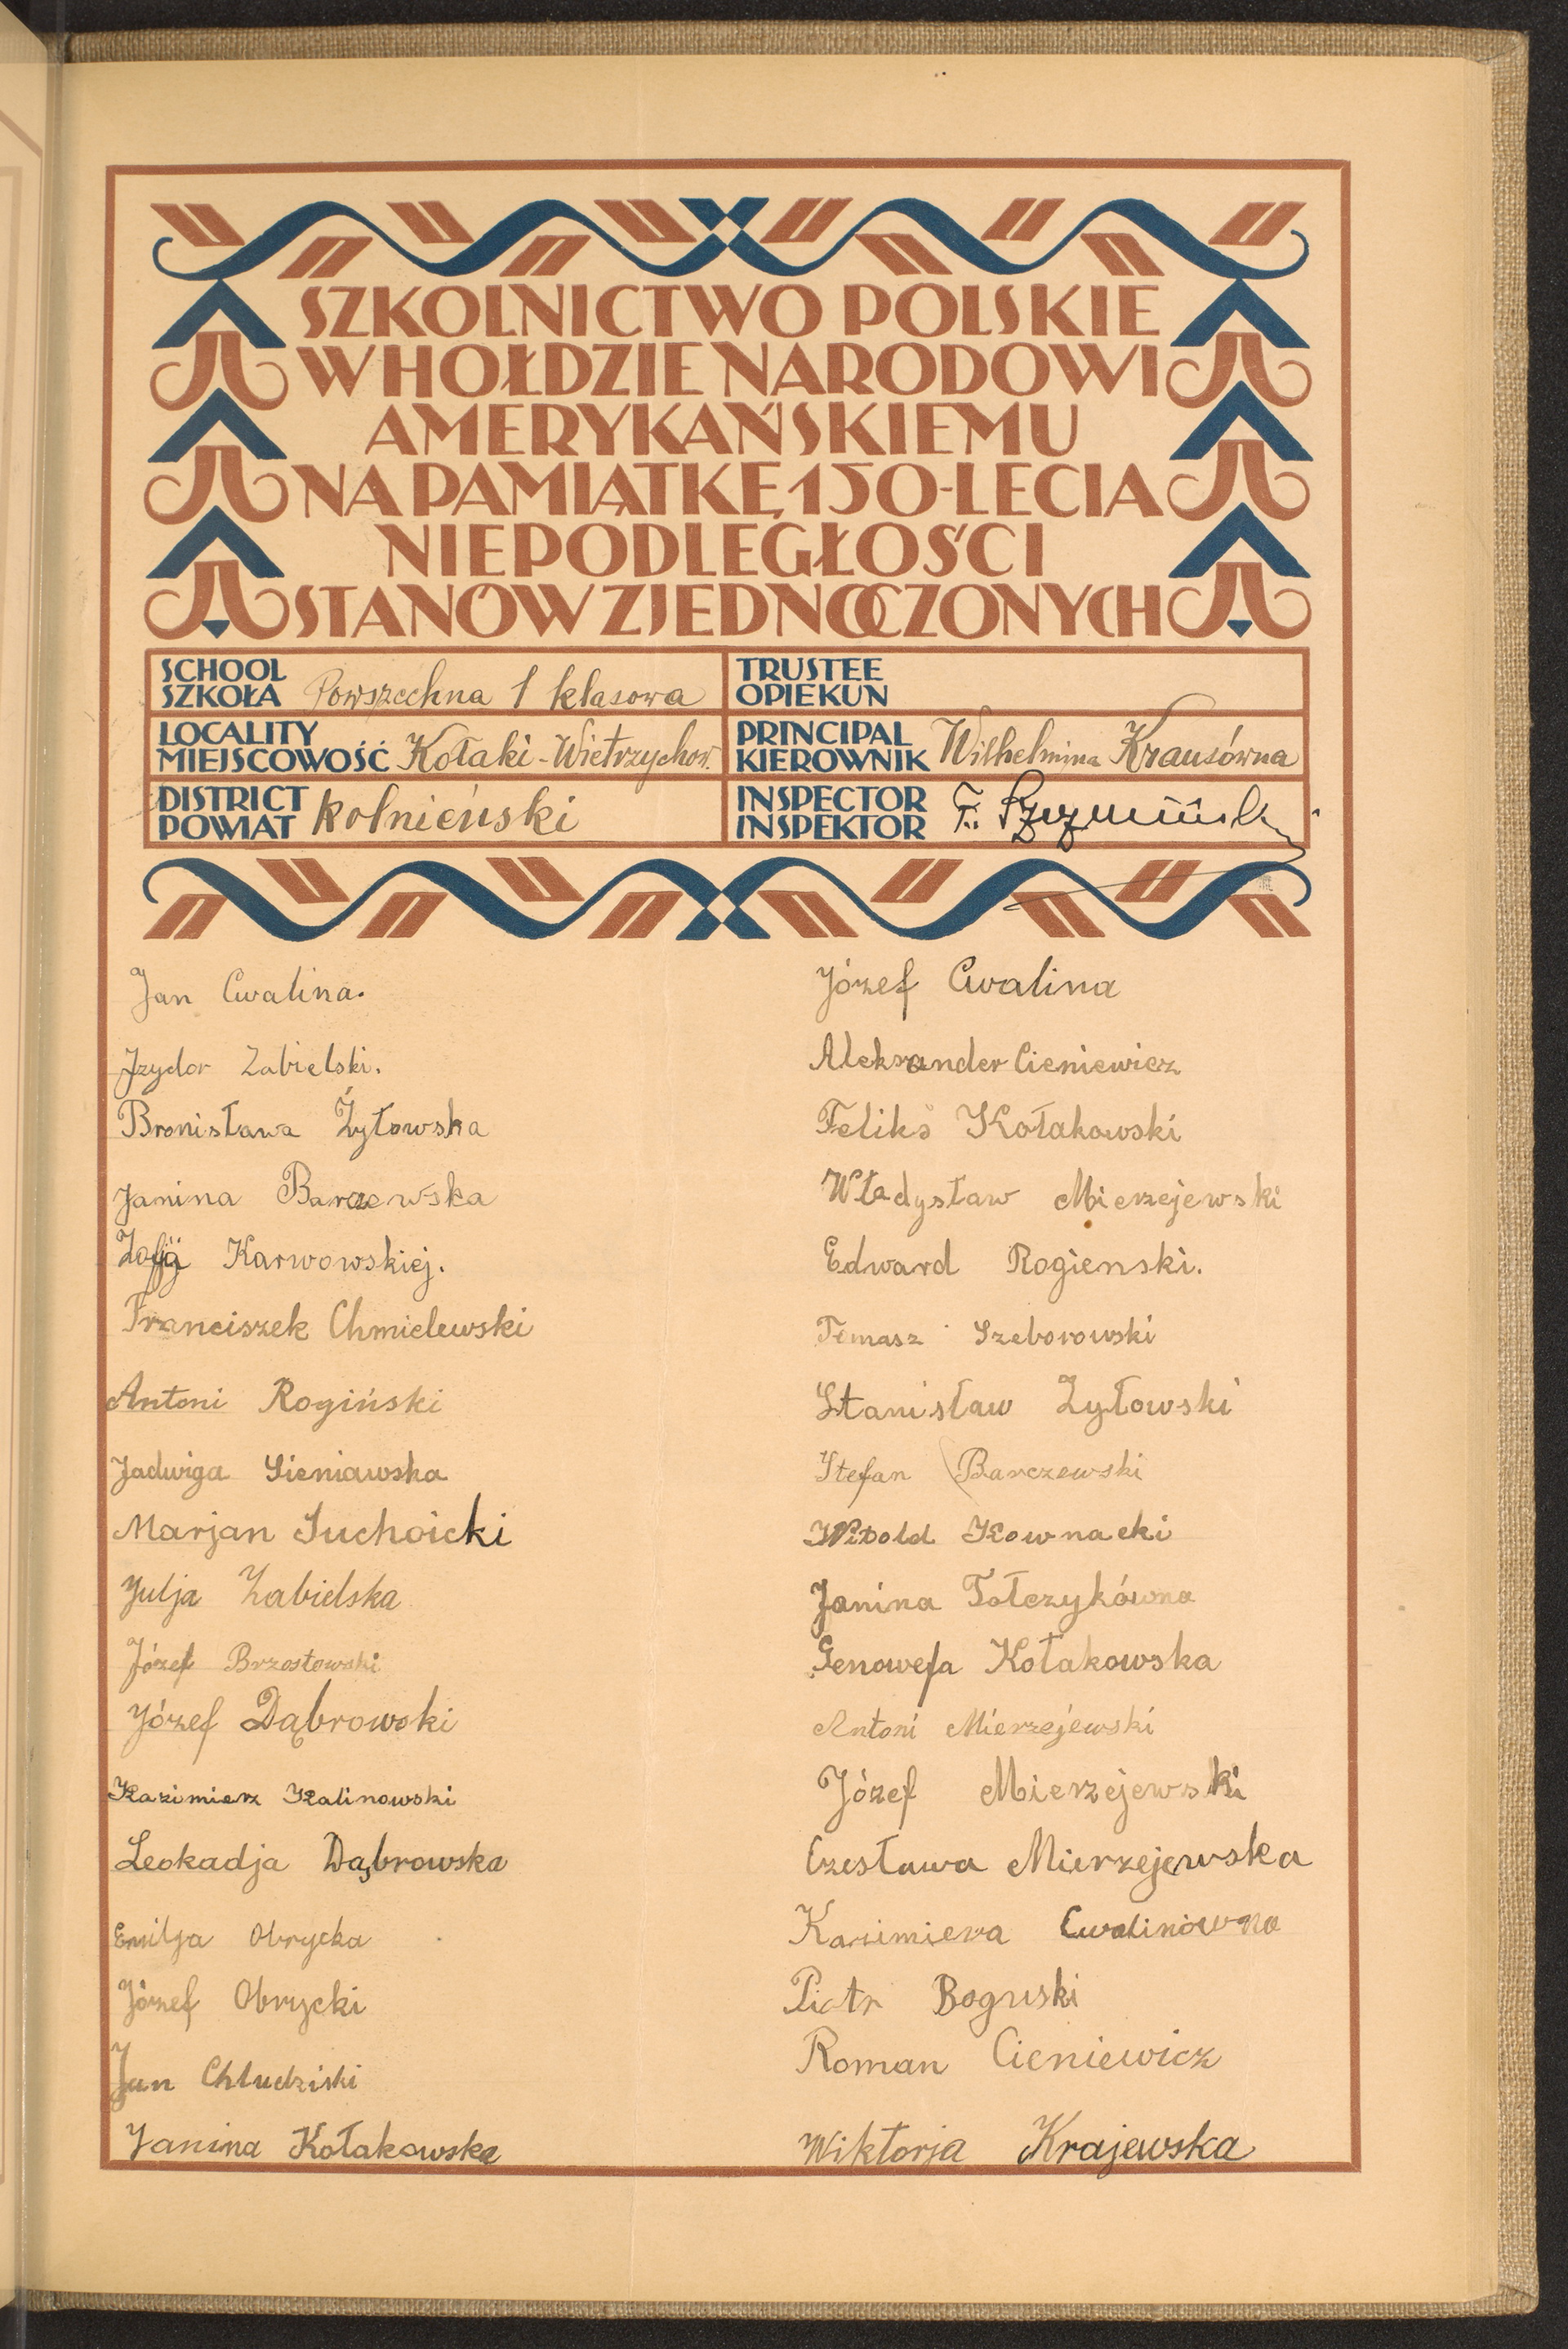 SZKOLNICTWO POLSKIE
W HOŁDZIE NARODOWI
AMERYKAŃSKIEMU
NA PAMIĄTKĘ 150-LECIA
NIEPODLEGŁOŚCI
STANÓW ZJEDNOCZONYCH
SCHOOL
SZKOŁA Powszechna 1 klasowa
TRUSTEE
OPIEKUN
LOCALITY
MIEJSCOWOŚĆ Kołaki-Wietrzychow.
PRINCIPAL
KIEROWNIK Wilhelmina Krausówna
DISTRICT
POWIAT kolnieński
INSPECTOR
INSPEKTOR F.
Jan Cwalina.
Izydor Zabielski.
Bronisława Żyłowska
Janina
Karwowskiej.
Franciszek Chmielewski
Antoni Rogiński
Jadwiga Sieniawska
Marjan Suchoicki
Julja Zabielska
Józef Brzostowski
Józef Dąbrowski
Kazimierz Kalinowski
Leokadja Dąbrowska
Emilja Obrycka
Józef Obrycki
Jan Chludziski
Janina Kołakowska
Józef Cwalina
Aleksander Cieniewicz
Feliks Kołakowski
Władysław Mierzejewski
Edward Rogienski.
Tomasz Szeborowski
Stanisław Zyłowski
Stefan Barczewski
Witold Kownacki
Janina Tołczykówna
Genowefa Kołakowska
Antoni Mierzejewski
Józef Mierzejewski
Czesława Mierzejewska
Kazimiera Cwalinówna
Piotr Boguski
Roman Cieniewicz
Wiktorja Krajewska